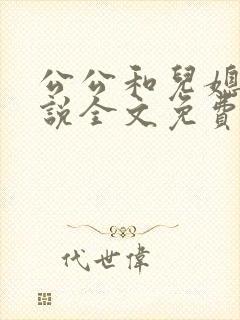 公公和兒媳
說全文免費
代世偉